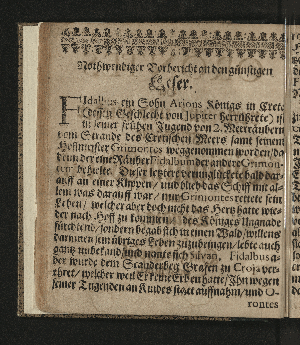 Nothwendiger Vorbericht an den günstigen
Leser.
FIdalbus ein Sohn Arions Königs in Creta
(dessen Geschlecht von Jupiter herrührete) ist
in seiner frühen Jugend von 2. Meerräubern
vom Strande des Cretischen Meers samt seinem
Hofmeister Grimontes weggenommen worden / da
denn der eine Räuber Fidalbum der andere Grimon-
tem behielte. Dieser letztere verunglückete bald dar-
auff an einer Klippen / und blieb das Schiff mit al-
lem was darauff war / nur Grimontes rettete sein
Leben / welcher aber doch nicht das Hertz hatte wie-
der nach Hoff zu kommen / des Königes Ungnade
fürchtend / sondern begab sich in einen Wald / willens
darinnen sein übriges Leben zuzubringen / lebte auch
gantz unbekand und nante sich Silvan, Fidalbus a-
ber wurde dem Scanderbeg Grafen zu Croja ver-
ehret / welcher weil Er keine Erben hatte / Ihn wegen
seiner Tugenden an Kindes stat auffnahm / und O-
rontes